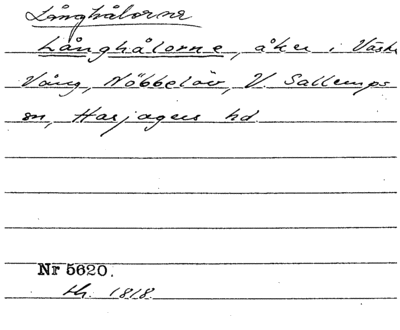 Långhålorne
Långhålorne, åker i Västr
Vång, Nöbbelöv, V. Sallerups
sn, Harjagers hd.
Nr 5620.
th. 1818.